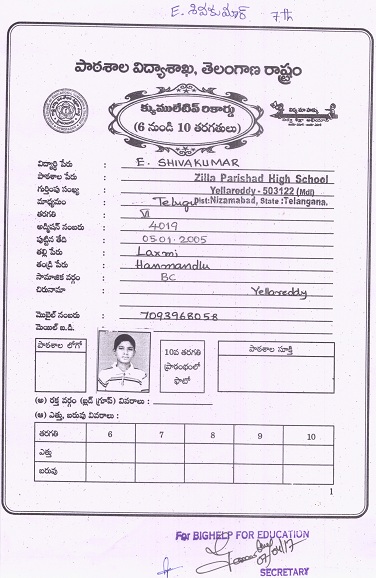 E. శివకుమార్ 7th
పాఠశాల విద్యాశాఖ, తెలంగాణ రాష్ట్రం
క్యుములేటివ్ రికార్డు
(6 నుండి 10 తరగతులు)
విద్యార్థి పేరు : E. SHIVAKUMAR
పాఠశాల పేరు : Zilla Parishad High School
గుర్తింపు సంఖ్య : Yellareddy - 503122 (Mdl)
మాధ్యమం : Telugu Dist: Nizamabad, State : Telangana.
తరగతి : VI
అడ్మిషన్ నంబరు : 4019
పుట్టిన తేది : 05.01.2005
తల్లి పేరు : Laxmi
తండ్రి పేరు : Hanmandlu
సామాజిక వర్గం : BC
చిరునామా : Yellareddy
మొబైల్ నంబరు : 7093968058
మెయిల్ ఐ.డి. :
పాఠశాల లోగో
10వ తరగతి
ప్రారంభంలో
ఫొటో
పాఠశాల సూక్తి
(అ) రక్త వర్గం (బ్లడ్ గ్రూప్) వివరాలు :
(ఆ) ఎత్తు, బరువు వివరాలు :
తరగతి 6 7 8 9 10
ఎత్తు
బరువు
1
For BIGHELP FOR EDUCATION
07/04/17
SECRETARY